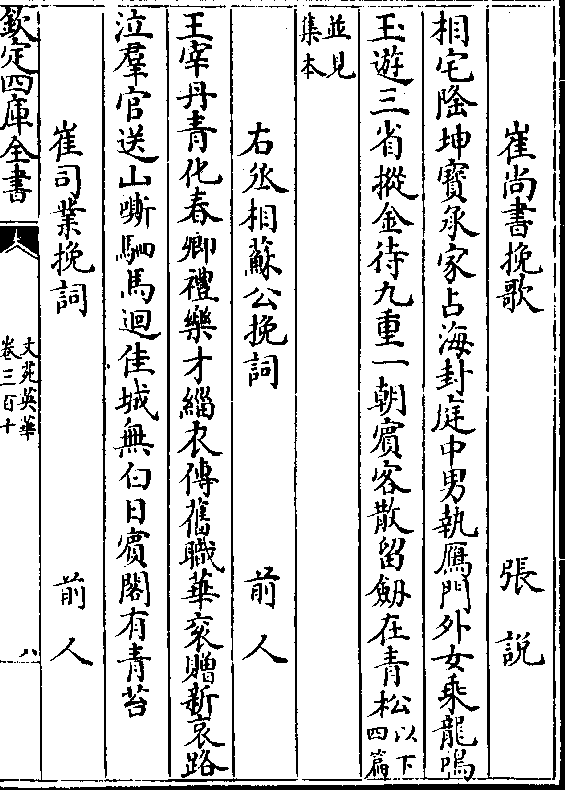 崔尚書挽歌　張說
相宅隆坤寶承家占海封庭中男執鴈門外女乘龍鳴
玉遊三省摐金待九重一朝賓客散留劒在青松以下四篇
並見集本
右丞相蘇公挽詞　前人
王宰丹青化春卿禮樂才緇衣傳舊職華衮贈新哀路
泣羣官送山嘶駟馬迴佳城無白日賓閣有青苔
崔司業挽詞　前人
欽定四庫全書
文苑英華
卷三百十
八